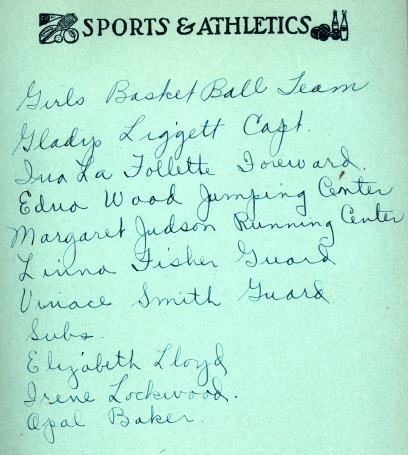 SPORTS & ATHLETICS
Girls Basket Ball Team
Gladys Liggett Capt.
Ina La Follette Foreward.
Edna Wood Jumping Center
Margaret Judson Running Center
Linna Fisher Guard
Vinace Smith Guard
Subs.
Elizabeth Lloyd
Irene Lockwood.
Opal Baker.